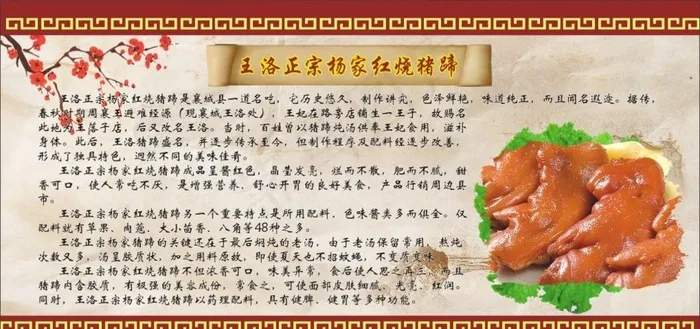 王洛正宗杨家红烧猪蹄
王洛正宗杨家红烧猪蹄是襄城县一道名吃，它历史悠久，制作讲究，色泽鲜艳，味道纯正，而且闻名遐迩。据传，
春秋时期周襄王避难经源（现襄城王洛处），王妃在路旁店铺生一王子，故赐名
此地为王落子店，后又改名王洛。当时，百姓曾以猪蹄炖汤供奉王妃食用，滋补
身体。此后，王洛猪蹄盛名，并逐步传承至今，但制作程序及配料经逐步改善，
形成了独具特色，迥然不同的美味佳肴。
王洛正宗杨家红烧猪蹄成品呈酱红色，晶莹发亮，烂而不散，肥而不腻，甜
香可口，使人常吃不厌，是增强营养、舒心开胃的良好美食，产品行销周边县
市。
王洛正宗杨家红烧猪蹄另一个重要特点是所用配料、色味酱类多而俱全。仅
配料就有草果、肉蔻、大小茴香、八角等48种之多。
王洛正宗杨家猪蹄的关键还在于最后焖炖的老汤，由于老汤保留常用，熬炖
次数又多，汤呈胶质状，加之用料原故，即使夏天也不招蚊蝇，不变质变味
王洛正宗杨家红烧猪蹄不但浓香可口，味美异常，食后使人思之再三，而且
猪蹄内含胶质，有极强的美容成份，常食之，可使面部皮肤细腻、光亮、红润。
同时，王洛正宗杨家红烧猪蹄以药理配料，具有健脾、健胃等多种功能。